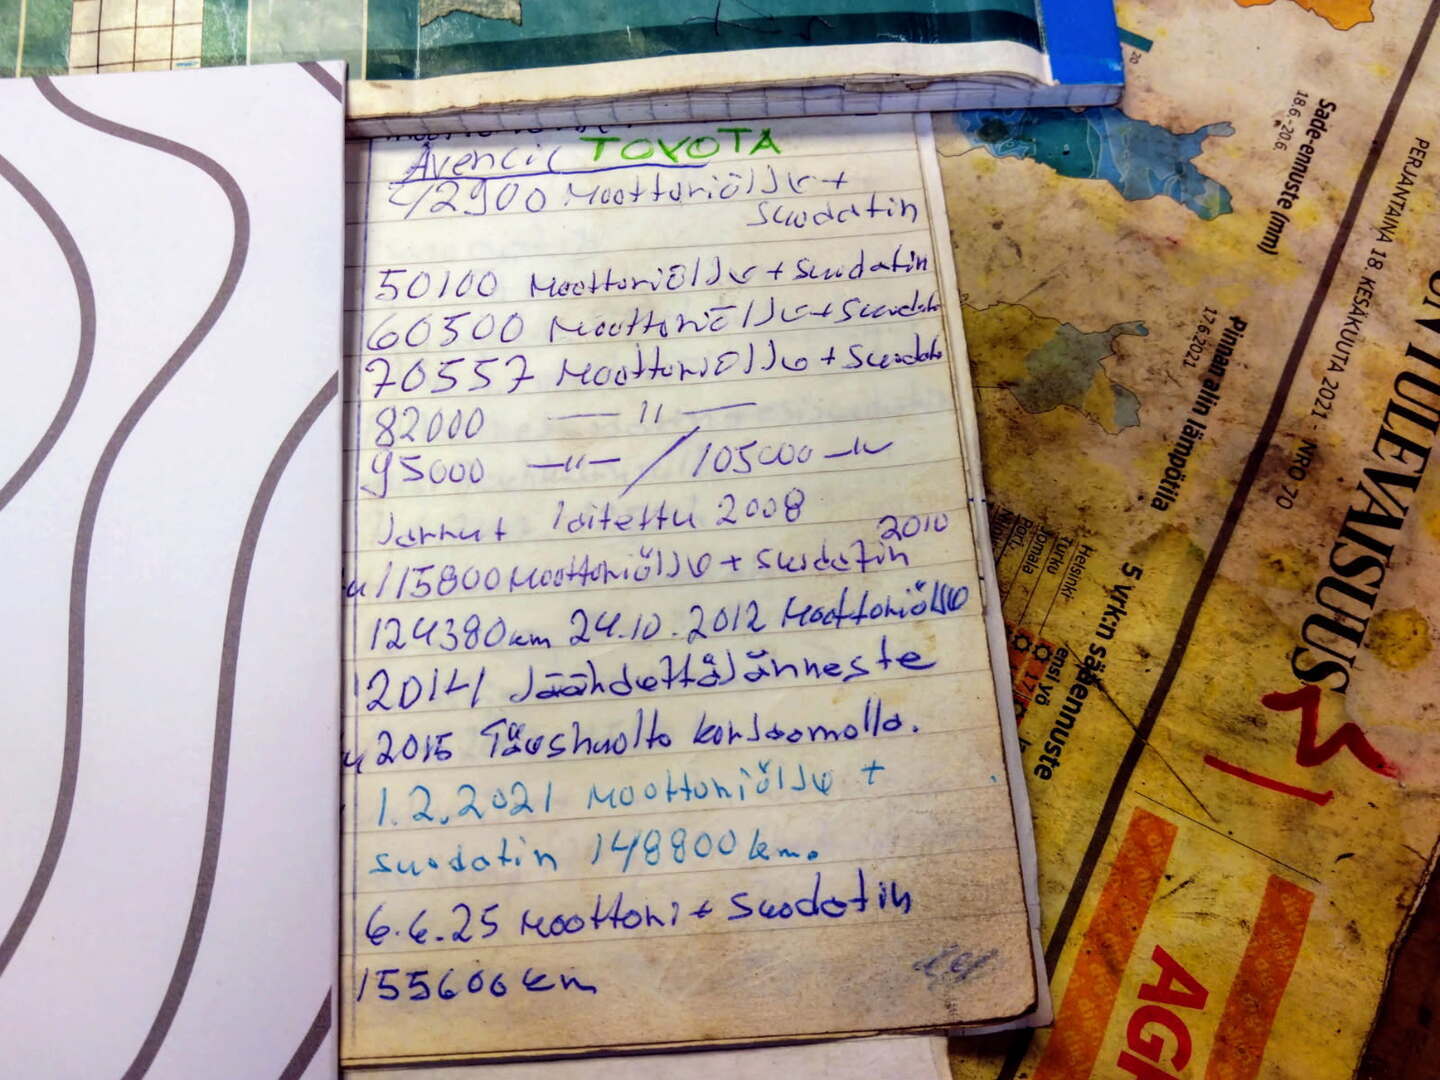 Avencic TOYOTA
42900 Moottoriöljy +
suodatin
50100 Moottoriöljy + suodatin
60500 Moottoriöljy + suodatin
70557 Moottoriöljy + suodatin
82000 — 11 —
95000 — 11 — / 105000 — 11
Jarrut laitettu 2008
2010
115800 Moottoriöljy + suodatin
124380 km 24.10.2012 Moottoriöljy
2014 Jäähdyttäjänneste
2015 Täyshuolto korjaamolla.
1.2.2021 Moottoriöljy +
suodatin 148800 km.
6.6.25 Moottori + Suodatin
155600 km
Sade-ennuste (mm)
18.6.-20.6.
Pinnanalin lämpötila
17.6.2021
PERJANTAINA 18. KESÄKUUTA 2021 - NRO 70
ON TULEVAISUUS
5 vrk:n sääennuste
Helsinki
Turku
Jomala
ensi yö
17
20